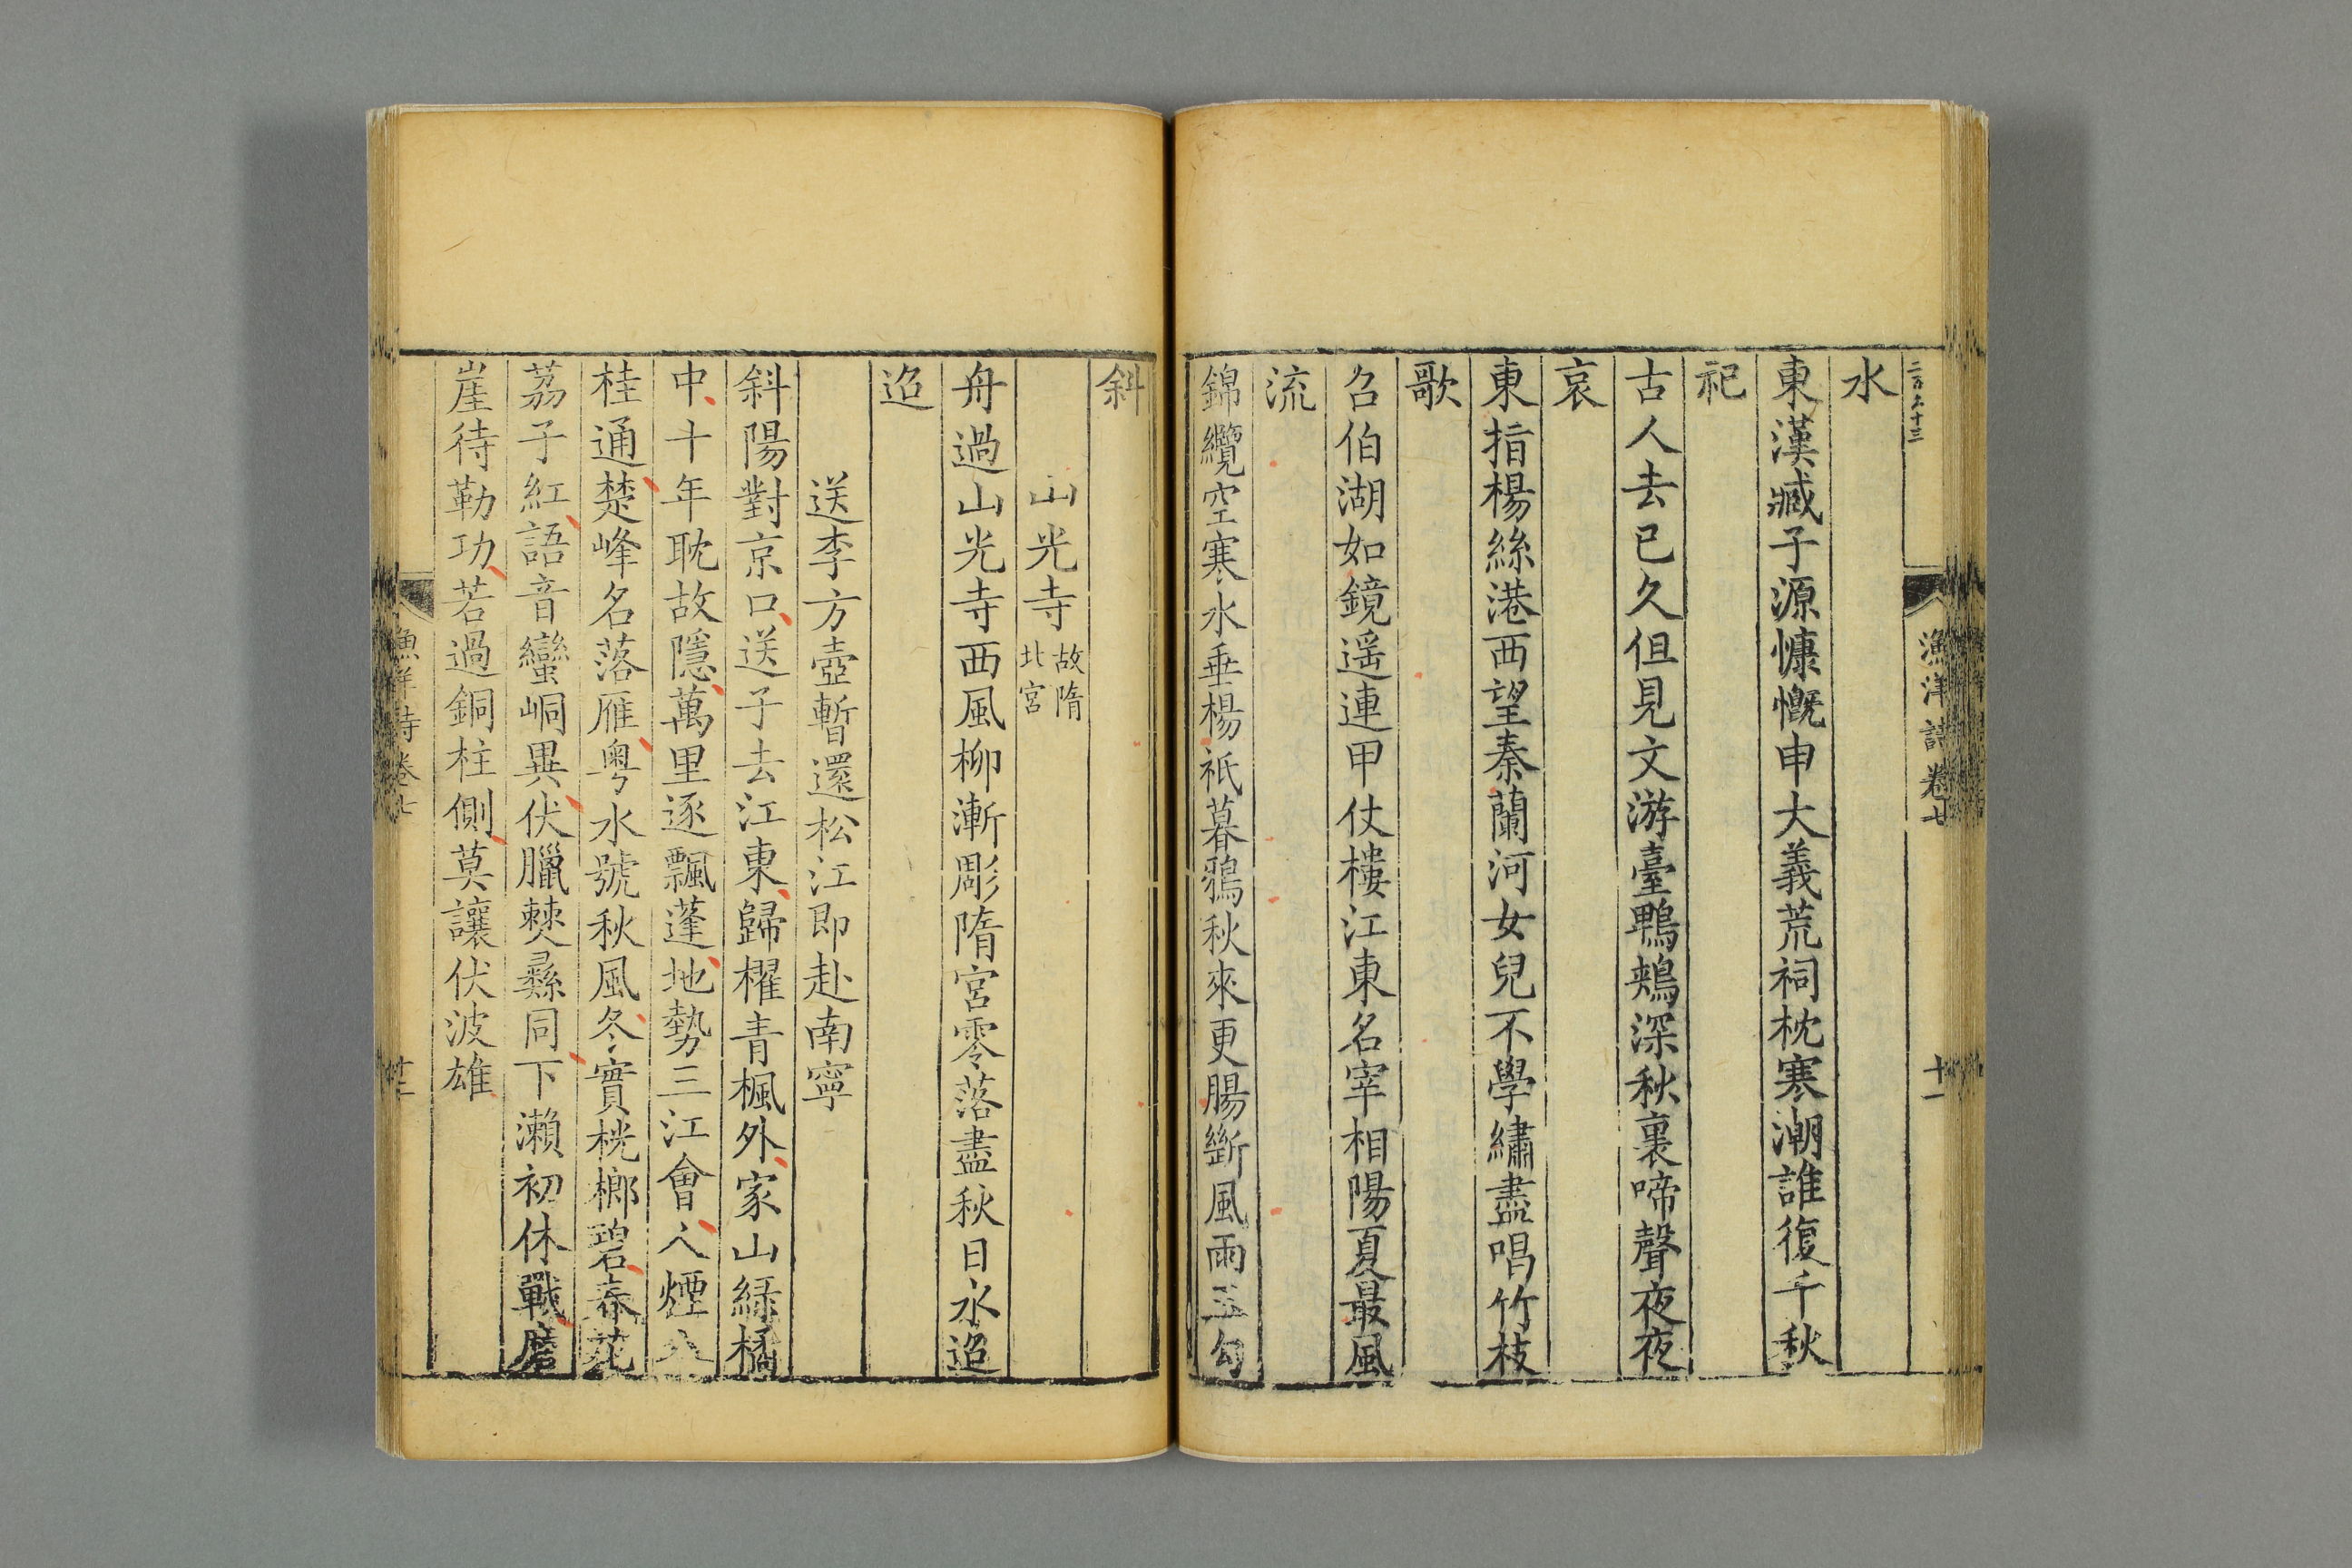 漁洋詩卷七
十一
水
東漢臧子源慷慨申大義荒祠枕寒潮誰復千秋
祀
古人去已久但見文游臺鵯鶋深秋裏啼聲夜夜
哀
東指楊絲港西望秦蘭河女兒不學繡盡唱竹枝
歌
召伯湖如鏡遥連甲仗樓江東名宰相陽夏最風
流
錦纜空寒水垂楊祇暮鴉秋來更腸斷風雨玉勾
斜
山光寺故隋北宮
舟過山光寺西風柳漸彫隋宮零落盡秋日水迢
迢
送李方壺暫還松江即赴南寧
斜陽對京口送子去江東歸櫂青楓外家山綠橘
中十年耽故隱萬里逐飄蓬地勢三江會人煙八
桂通楚峰名落雁粤水號秋風冬實桄榔碧春花
荔子紅語音蠻峒異伏臘僰彞同下瀨初休戰磨
崖待勒功若過銅柱側莫讓伏波雄
漁洋詩卷七